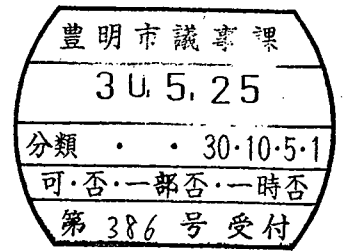 豊明市議事課
30.5.25
分類 ・ ・ 30・10・5・1
可・否・一部否・一時否
第 386 号 受付